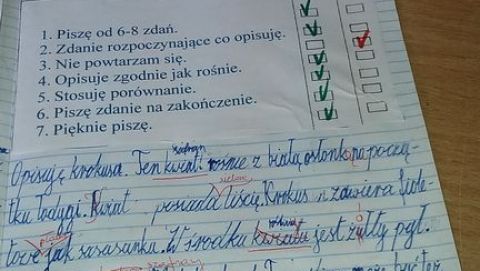 1. Piszę od 6-8 zdań.
2. Zdanie rozpoczynające co opisuję.
3. Nie powtarzam się.
4. Opisuje zgodnie jak rośnie.
5. Stosuję porównanie.
6. Piszę zdanie na zakończenie.
7. Pięknie piszę.
Opisuję krokusa. Ten kwiat rośnie z białą osłonką na począ-
tku łodygi. Kwiat posiada liście. Krokus zawiera
jak sasasanka. W środku kwiatu jest żółty pył.